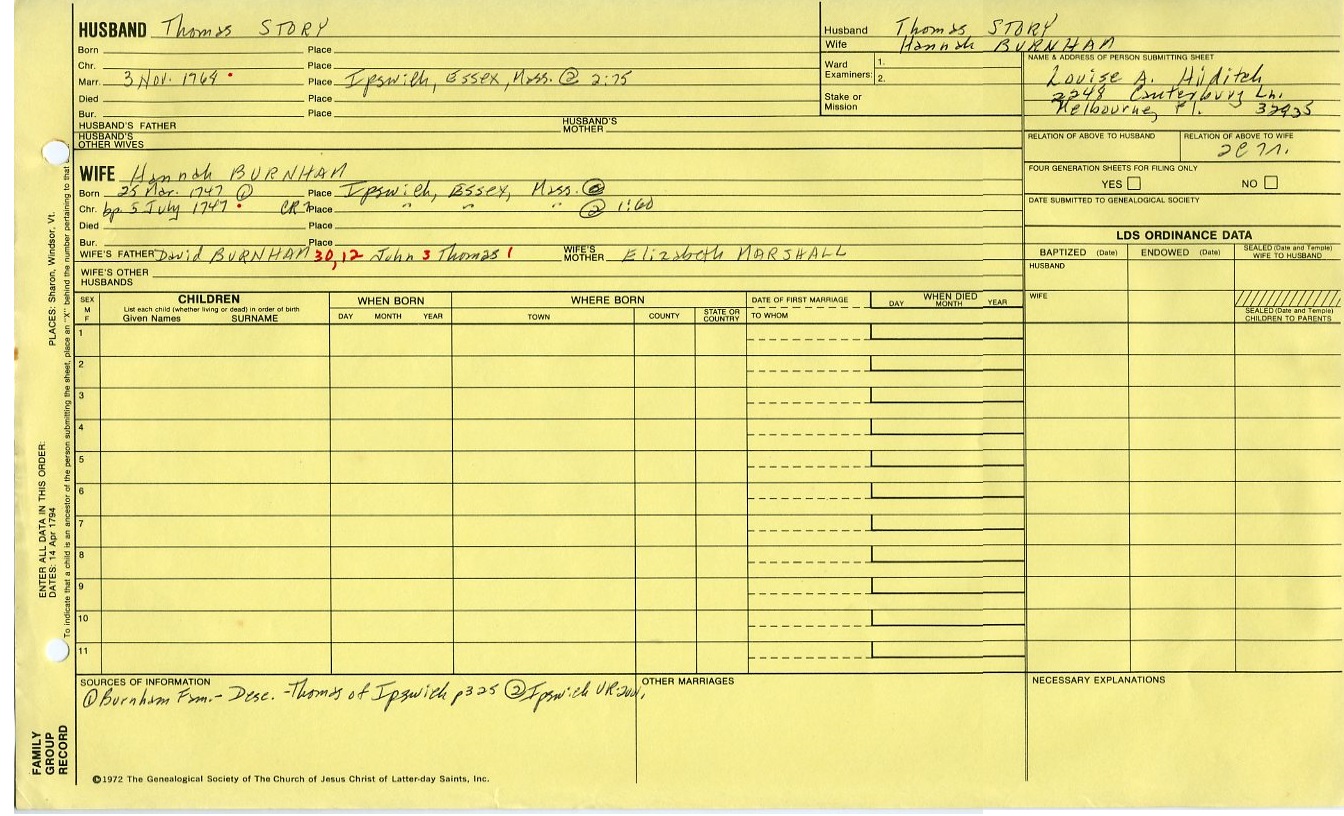 HUSBAND Thomas STORY
Born Place
Chr. Place
Marr. 3 Nov. 1764 Place Ipswich, Essex, Mass. @ 2:75
Died Place
Bur. Place
HUSBAND'S FATHER HUSBAND'S MOTHER
HUSBAND'S OTHER WIVES
WIFE Hannah BURNHAM
Born 25 Mar. 1747 ① Place Ipswich, Essex, Mass.
Chr. bp. 5 July 1747 CR Place " " " ② 1:60
Died Place
Bur. Place
WIFE'S FATHER David BURNHAM 30,12 John 3 Thomas 1 WIFE'S MOTHER Elizabeth MARSHALL
WIFE'S OTHER HUSBANDS
Husband Thomas STORY
Wife Hannah BURNHAM
Ward Examiners: 1.
2.
Stake or Mission
NAME & ADDRESS OF PERSON SUBMITTING SHEET
Louise A. Hilditch
2248 Canterbury Ln.
Melbourne, Fl. 32935
RELATION OF ABOVE TO HUSBAND RELATION OF ABOVE TO WIFE
FOUR GENERATION SHEETS FOR FILING ONLY
YES NO
DATE SUBMITTED TO GENEALOGICAL SOCIETY
LDS ORDINANCE DATA
BAPTIZED (Date) ENDOWED (Date) SEALED (Date and Temple) WIFE TO HUSBAND
HUSBAND
WIFE
SEALED (Date and Temple) CHILDREN TO PARENTS
SEX M F
CHILDREN
List each child (whether living or dead) in order of birth
Given Names SURNAME
WHEN BORN
DAY MONTH YEAR
WHERE BORN
TOWN COUNTY STATE OR COUNTRY
DATE OF FIRST MARRIAGE
TO WHOM
WHEN DIED
DAY MONTH YEAR
1
2
3
4
5
6
7
8
9
10
11
SOURCES OF INFORMATION
① Burnham Fam. - Desc. - Thomas of Ipswich p325 ② Ipswich VR:
OTHER MARRIAGES
NECESSARY EXPLANATIONS
©1972 The Genealogical Society of The Church of Jesus Christ of Latter-day Saints, Inc.
FAMILY GROUP RECORD
ENTER ALL DATA IN THIS ORDER:
DATES: 14 Apr 1794
PLACES: Sharon, Windsor, Vt.
To indicate that a child is an ancestor of the person submitting the sheet, place an "X" behind the number pertaining to that